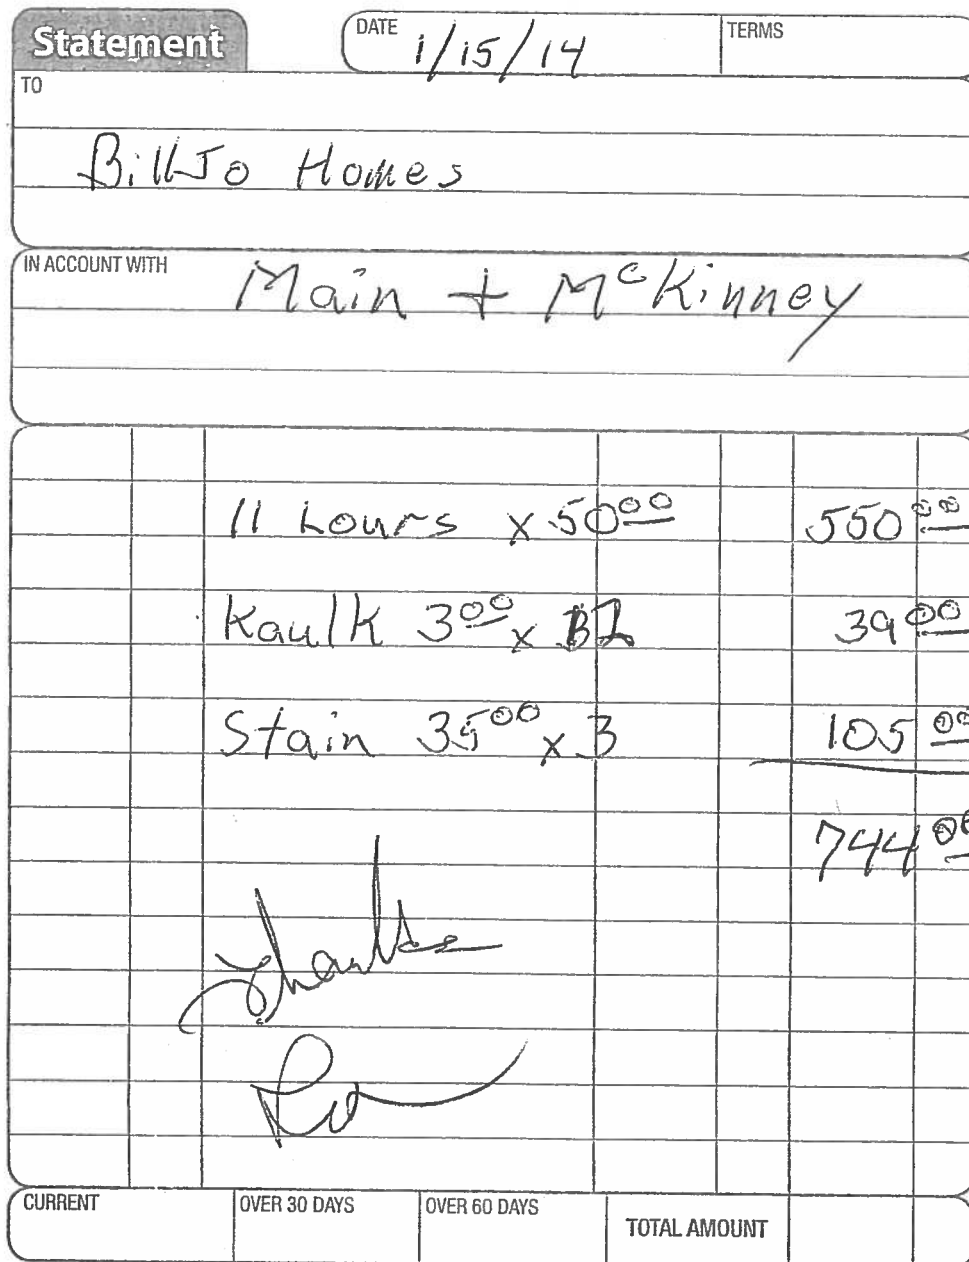 Statement
DATE 1/15/14
TERMS
TO
BillJo Homes
IN ACCOUNT WITH Main + McKinney
11 hours x 50 00 550 00
Kaulk 3 00 x 39 00
Stain 35 00 x 3 105 00
744 00
Thanks
CURRENT OVER 30 DAYS OVER 60 DAYS TOTAL AMOUNT